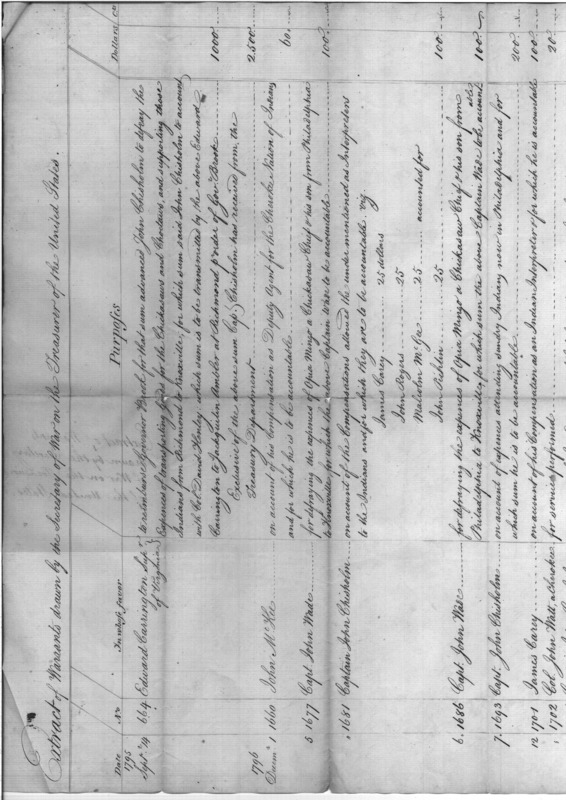 Extract of Warrants drawn by the Secretary of War on the Treasurer of the United States.
Date No. In whose favor Purposes Dollars Cts
1795
Sept. 14 664 Edward Carrington Sup.r to reimburse Governor Brook for that sum advanced John Chisholm to defray the
of Virginia expences of transporting goods for the Chickasaws and Choctaws, and supporting those
Indians from Richmond to Knoxville, for which sum said John Chisholm to account
with Col. David Henley which sum is to be transmitted by the above Edward
Carrington to Jacquelin Ambler at Richmond p order of Gov. Brook 1000
Exclusive of the above sum Cap. Chisholm has received from the
Treasury Department 2500
1796
1 1660 John McKee on account of his compensation as Deputy Agent for the Cherokee Nation of Indians
and for which he is to be accountable 60.
5 1677 Capt John Wade for defraying the expences of Opia Mingo a Chickasaw Chief & his son from Philadelphia
to Knoxville, for which the above Captain Wade to be accountable 100
1681 Captain John Chisholm on account of the Compensations allowed the under mentioned as Interpreters
to the Indians and for which they are to be accountable viz
James Carey 25 dollars
John Rogers 25
Malcolm McGee 25 accounted for
John Pishlin 25 100
6. 1686 Capt John Wade for defraying the expences of Opia Mingo a Chickasaw Chief & his son from
Philadelphia to Knoxville, for which sum the above Captain Wade to be accountable 100
7. 1693 Capt. John Chisholm on account of expences attending sundry Indians now in Philadelphia and for
which sum he is to be accountable 200
12 1701 James Carey on account of his Compensation as an Indian Interpreter & for which he is accountable 100
1702 Col. John Watt, a Cherokee for services performed 20